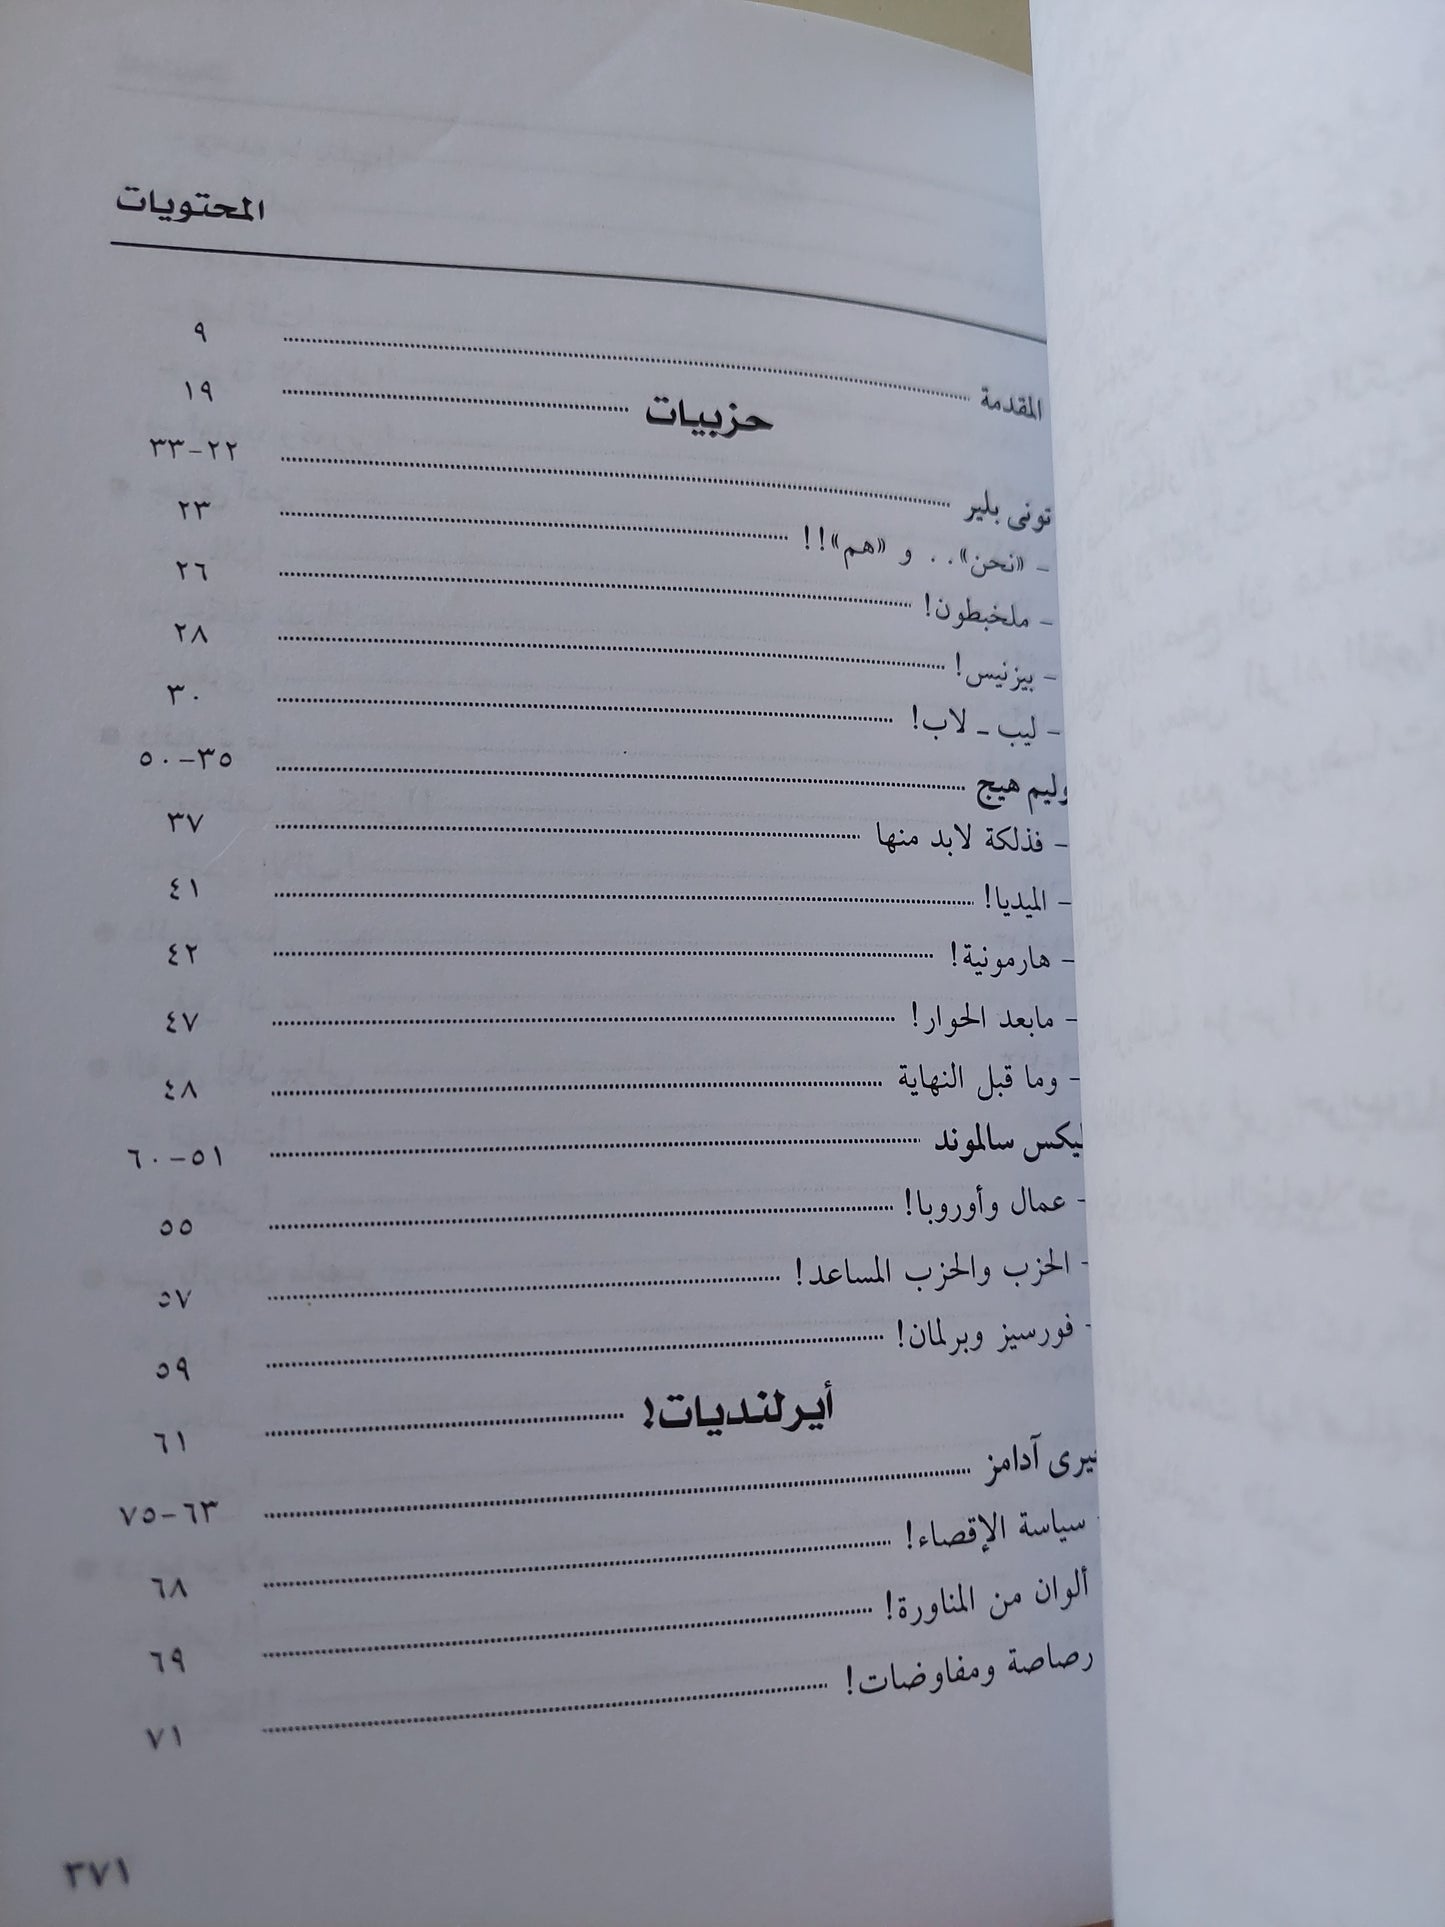 المحتويات
المقدمة ٩
حزبيات ١٩
تونى بلير ٢٢-٣٣
- «نحن».. و «هم»!! ٢٣
- ملخبطون! ٢٦
- بيزنيس! ٢٨
- ليب ـ لاب! ٣٠
وليم هيج ٣٥-٥٠
- فذلكة لابد منها ٣٧
- الميديا! ٤١
- هارمونية! ٤٢
- مابعد الحوار! ٤٧
- وما قبل النهاية ٤٨
ليكس سالموند ٥١-٦٠
- عمال وأوروبا! ٥٥
- الحزب والحزب المساعد! ٥٧
- فورسيز وبرلمان! ٥٩
أيرلنديات! ٦١
يرى آدامز ٦٣-٧٥
- سياسة الإقصاء! ٦٨
ألوان من المناورة! ٦٩
رصاصة ومفاوضات! ٧١
٣٧١